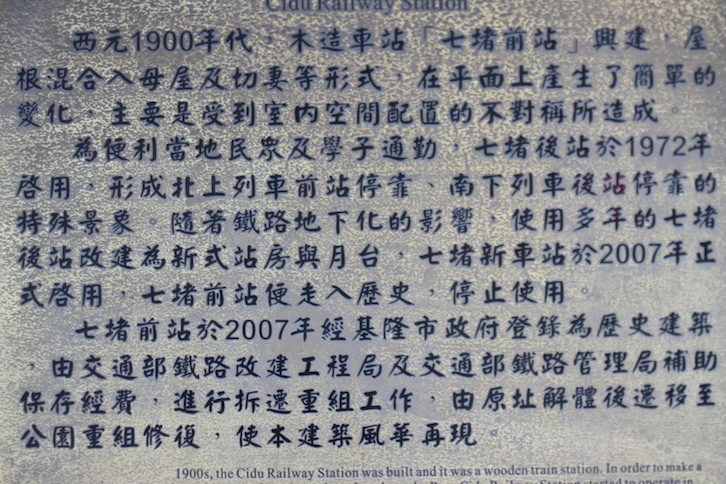 Cidu Railway Station
西元1900年代，木造車站「七堵前站」興建，屋
根混合入母屋及切妻等形式，在平面上產生了簡單的
變化，主要是受到室內空間配置的不對稱所造成。
為便利當地民眾及學子通勤，七堵後站於1972年
啓用，形成北上列車前站停靠、南下列車後站停靠的
特殊景象。隨著鐵路地下化的影響，使用多年的七堵
後站改建為新式站房與月台，七堵新車站於2007年正
式啓用，七堵前站便走入歷史，停止使用。
七堵前站於2007年經基隆市政府登錄為歷史建築
，由交通部鐵路改建工程局及交通部鐵路管理局補助
保存經費，進行拆遷重組工作，由原址解體後遷移至
公園重組修復，使本建築風華再現。
1900s, the Cidu Railway Station was built and it was a wooden train station. In order to make a